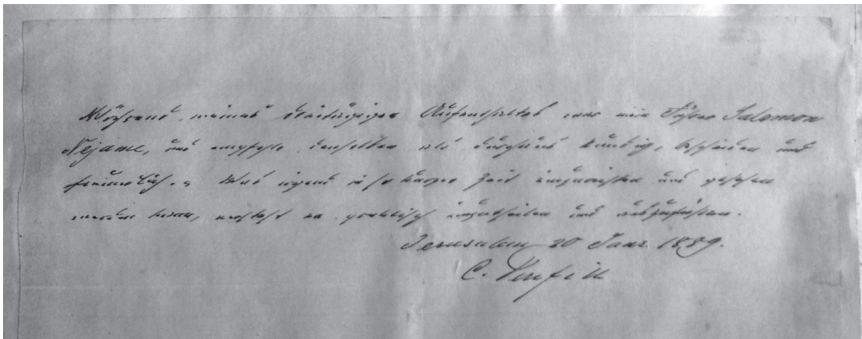 Während meines dreitägigen Aufenthaltes war mein Führer Salomon
Néjame, und empfehle denselben als durchaus kundig, bescheiden und
freundlich. Was irgend in so kurzer Zeit und gesehen
werden kann, versteht er praktisch einzutheilen und auszuführen.
Jerusalem 20 Jaar. 1889.
C.